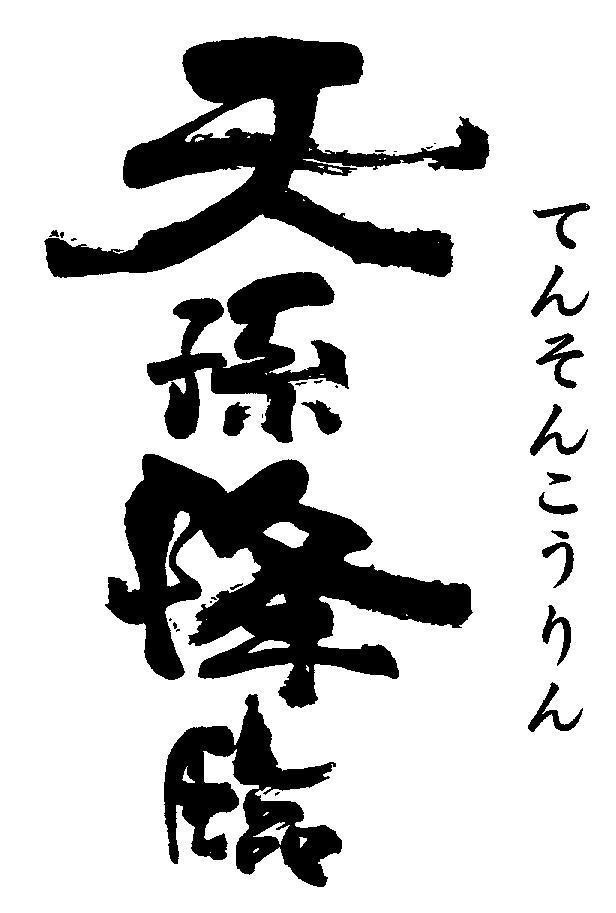 てんそんこうりん
天孫降臨